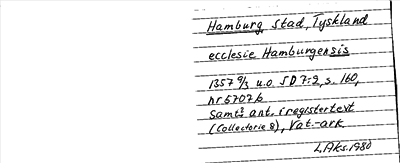 Hamburg, stad, Tyskland
ecclesie Hamburgensis
1357 9/3 u.o. SD 7:2, s. 160,
nr 5707 b
Samt. ant. i registertext
(Collectorie 8), Vat.-ark.
LAks. 1980